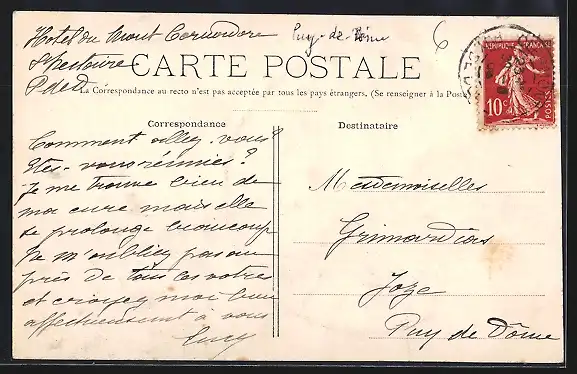 Hotel du Mont Cornadore
St Nectaire
P de D
Puy-de-Dôme
6
CARTE POSTALE
La Correspondance au recto n'est pas acceptée par tous les pays étrangers. (Se renseigner à la Poste
RÉPUBLIQUE FRANÇAISE
10c
POSTES
Correspondance
Destinataire
Comment allez-vous
Etes-vous réunies ?
Je me trouve bien de
ma cure mais elle
se prolonge beaucoup
Ne m'oubliez pas au
près de tous les vôtres
et croyez moi bien
affectueusement à vous
Lucy
Mesdemoiselles
Joze
Puy de Dôme